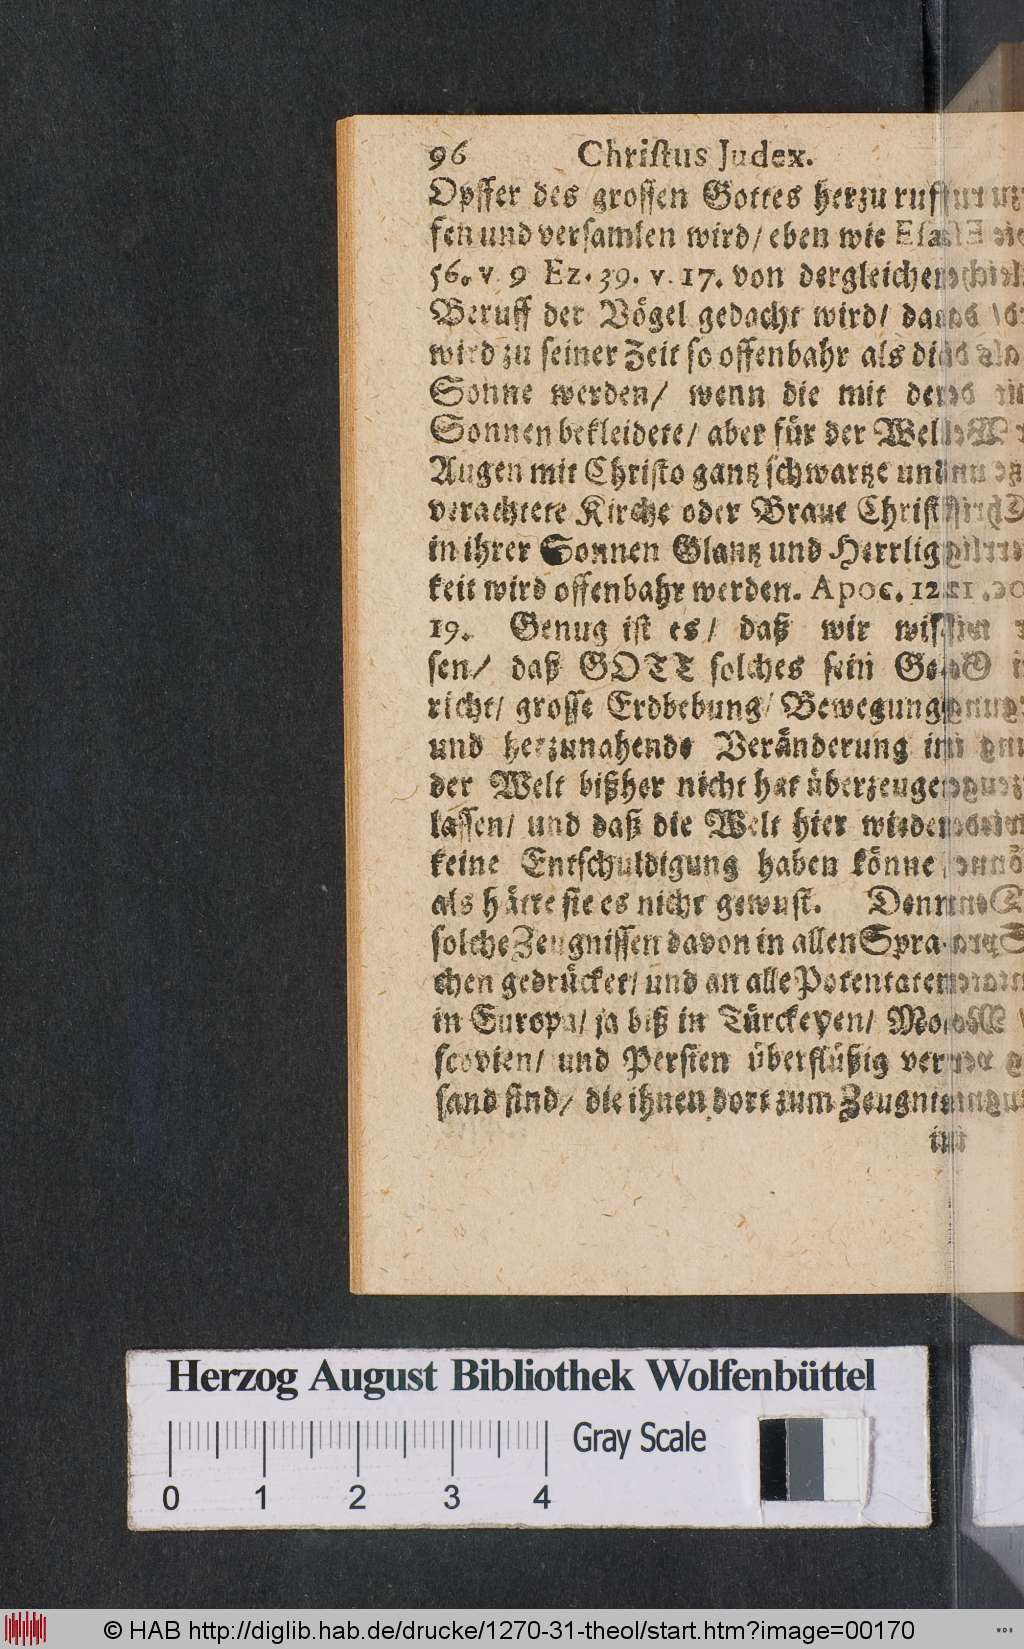 96 Christus Judex.
Opffer des grossen Gottes herzu ruf-
fen und versamlen wird/ eben wie Esai.
56. v 9 Ez. 39. v. 17. von dergleichen
Beruff der Vögel gedacht wird/ das
wird zu seiner Zeit so offenbahr als die
Sonne werden/ wenn die mit der
Sonnen bekleidete/ aber für der Welt
Augen mit Christo gantz schwartze und
verachtete Kirche oder Braut Christi
in ihrer Sonnen Glantz und Herrlig-
keit wird offenbahr werden. Apoc. 12.
19. Genug ist es/ daß wir wis-
sen/ daß GOTT solches sein Ge-
richt/ grosse Erdbebung/ Bewegung
und herzunahende Veränderung in
der Welt bißher nicht hat überzeugen
lassen/ und daß die Welt hier wieder
keine Entschuldigung haben könne
als hätte sie es nicht gewust. Denn
solche Zeugnissen davon in allen Spra-
chen gedrücket/ und an alle Potentaten
in Europa/ ja biß in Türckeyen/ Mo-
scovien/ und Persien überflüßig ver-
sand sind/ die ihnen dort zum Zeugniß
Herzog August Bibliothek Wolfenbüttel
Gray Scale
0 1 2 3 4
© HAB http://diglib.hab.de/drucke/1270-31-theol/start.htm?image=00170